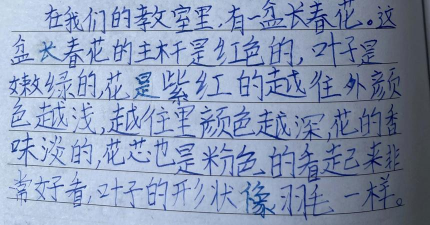 在我们的教室里,有一盆长春花。这
盆长春花的主杆是红色的,叶子是
嫩绿的,花是紫红的越往外颜
色越浅,越往里颜色越深,花的香
味淡的,花芯也是粉色的看起来非
常好看,叶子的形状像羽毛一样。